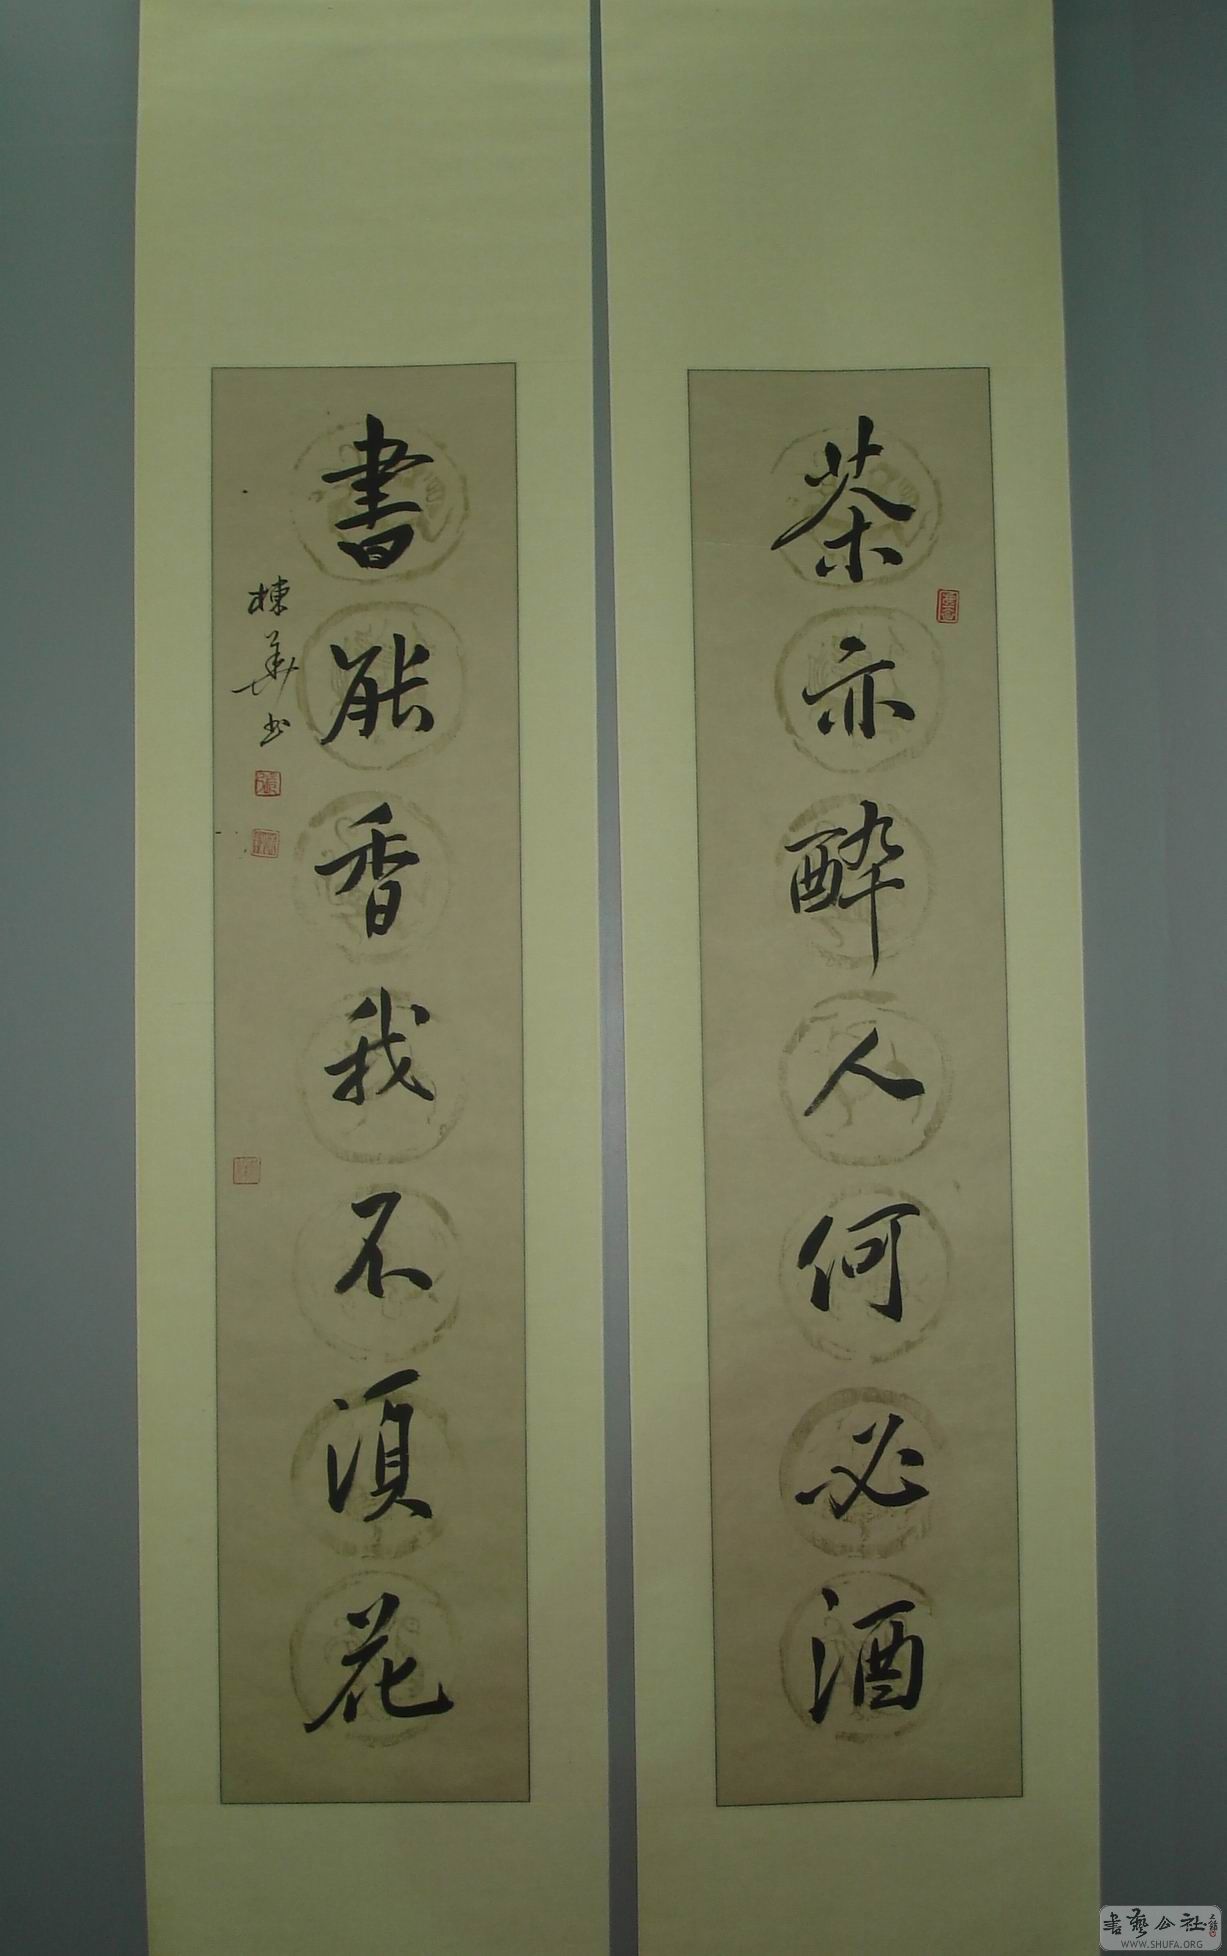 茶亦醉人何必酒
書能香我不須花
棟華书
書藝公社
WWW.SHUFA.ORG